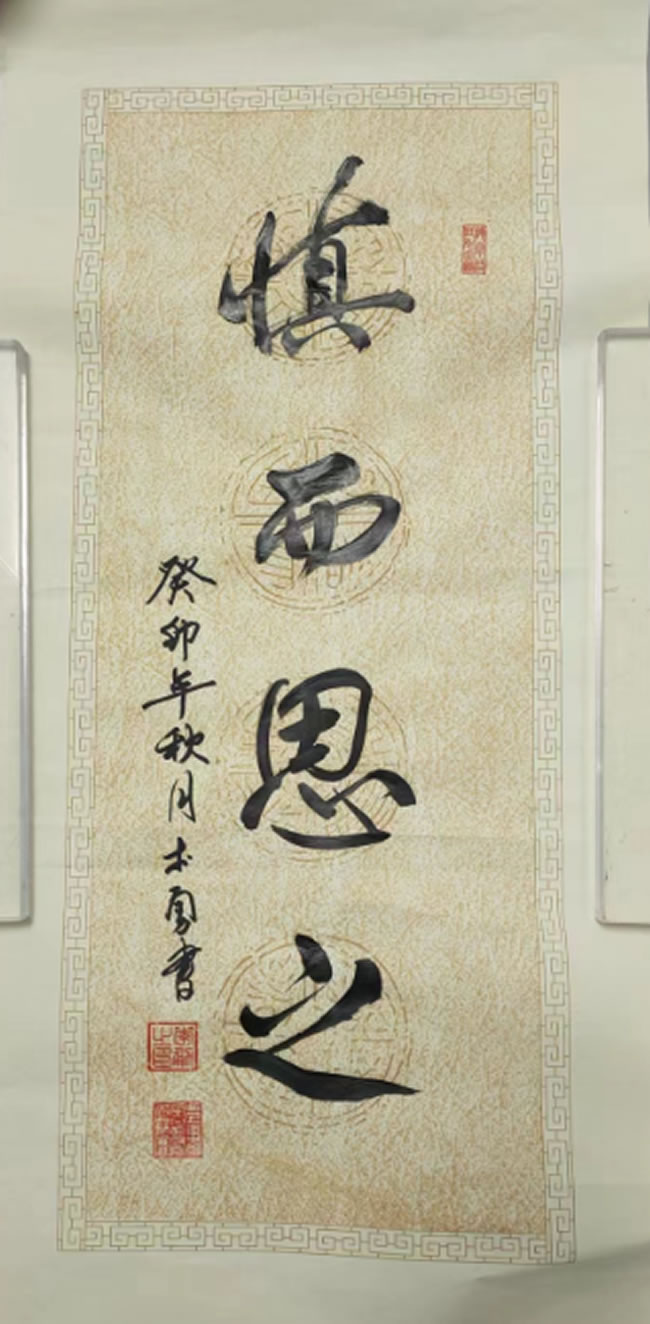 慎而思之
癸卯年秋月